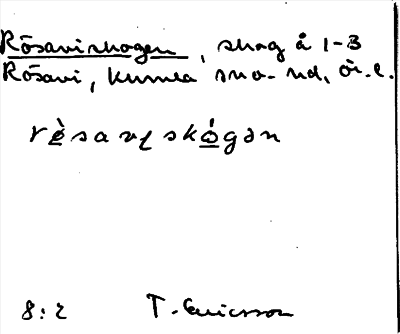 Rösaviskogen, skog å 1-3
Rösavi, Kumla sn o. hd, Ör. l.
rö̀savɩskó̱gən
8:2 T. Ericsson